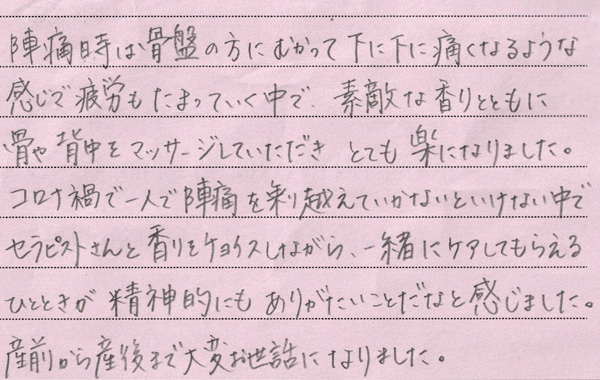 陣痛時は骨盤の方にむかって下に下に痛くなるような
感じで疲労もたまっていく中で、素敵な香りとともに
骨や背中をマッサージしていただきとても楽になりました。
コロナ禍で一人で陣痛を乗り越えていかないといけない中で
セラピストさんと香りをチョイスしながら、一緒にケアしてもらえる
ひとときが精神的にもありがたいことだなと感じました。
産前から産後まで大変お世話になりました。